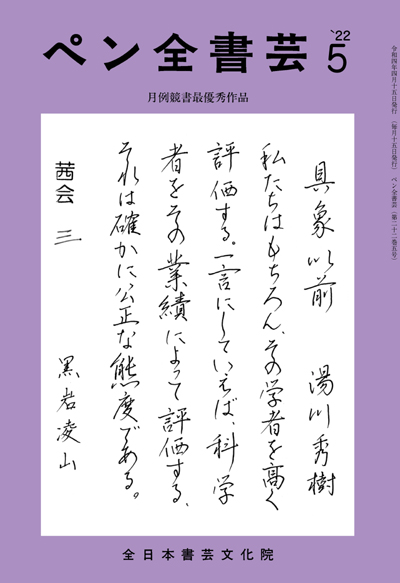 ペン全書芸 '22 5
月例競書最優秀作品
令和四年四月十五日発行(毎月十五日発行)ペン全書芸(第二十二巻五号)
具象以前 湯川秀樹
私たちはもちろん、その学者を高く
評価する。一言にしていえば、科学
者をその業績によって評価する、
それは確かに公正な態度である。
茜会 三 黒岩凌山
全日本書芸文化院